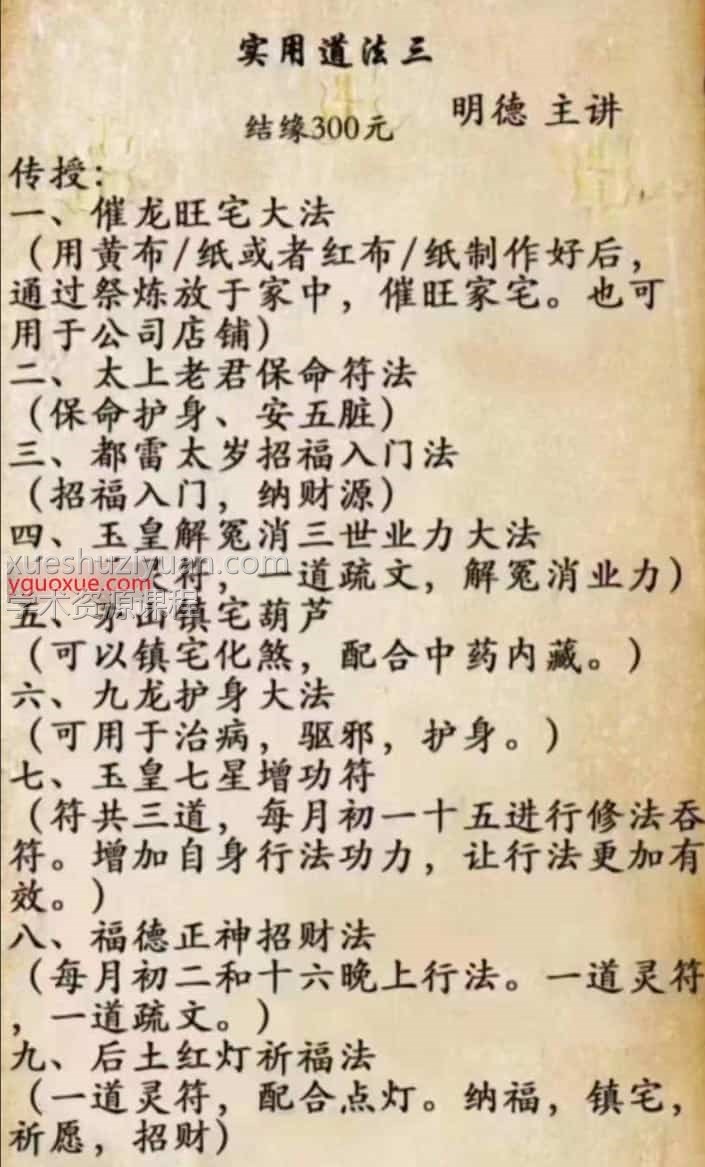 实用道法三
明德 主讲
结缘300元
传授：
一、催龙旺宅大法
（用黄布/纸或者红布/纸制作好后，
通过祭炼放于家中，催旺家宅。也可
用于公司店铺）
二、太上老君保命符法
（保命护身、安五脏）
三、都雷太岁招福入门法
（招福入门，纳财源）
四、玉皇解冤消三世业力大法
xueshuziyuan.com
yguoxue.com
灵符，一道疏文，解冤消业力）
学术资源课程
五、茅山镇宅葫芦
（可以镇宅化煞，配合中药内藏。）
六、九龙护身大法
（可用于治病，驱邪，护身。）
七、玉皇七星增功符
（符共三道，每月初一十五进行修法吞
符。增加自身行法功力，让行法更加有
效。）
八、福德正神招财法
（每月初二和十六晚上行法。一道灵符
，一道疏文。）
九、后土红灯祈福法
（一道灵符，配合点灯。纳福，镇宅，
祈愿，招财）